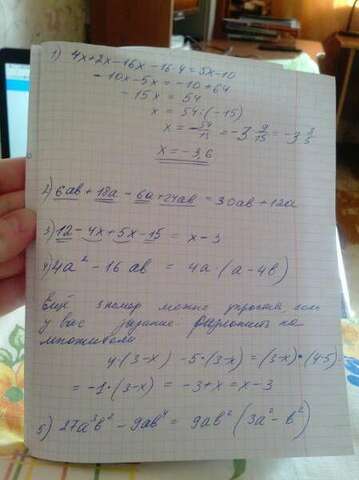 1) 4x+2x-16x-16·4=5x-10
-10x-5x=-10+64
-15x = 54
x = 54:(-15)
x = -54/15 = -3 9/15 = -3 3/5
x = -3,6
2) 6ab+18a-6a+24ab=30ab+12a
3) 12-4x+5x-15 = x-3
4) 4a²-16ab = 4a(a-4b)
Ещё 3 номер можно упростить если
у вас задание разложить на
множители
4(3-x) -5·(3-x)=(3-x)·(4-5)=
= -1·(3-x) = -3+x = x-3
5) 27a³b²-9ab⁴ = 9ab²(3a²-b²)